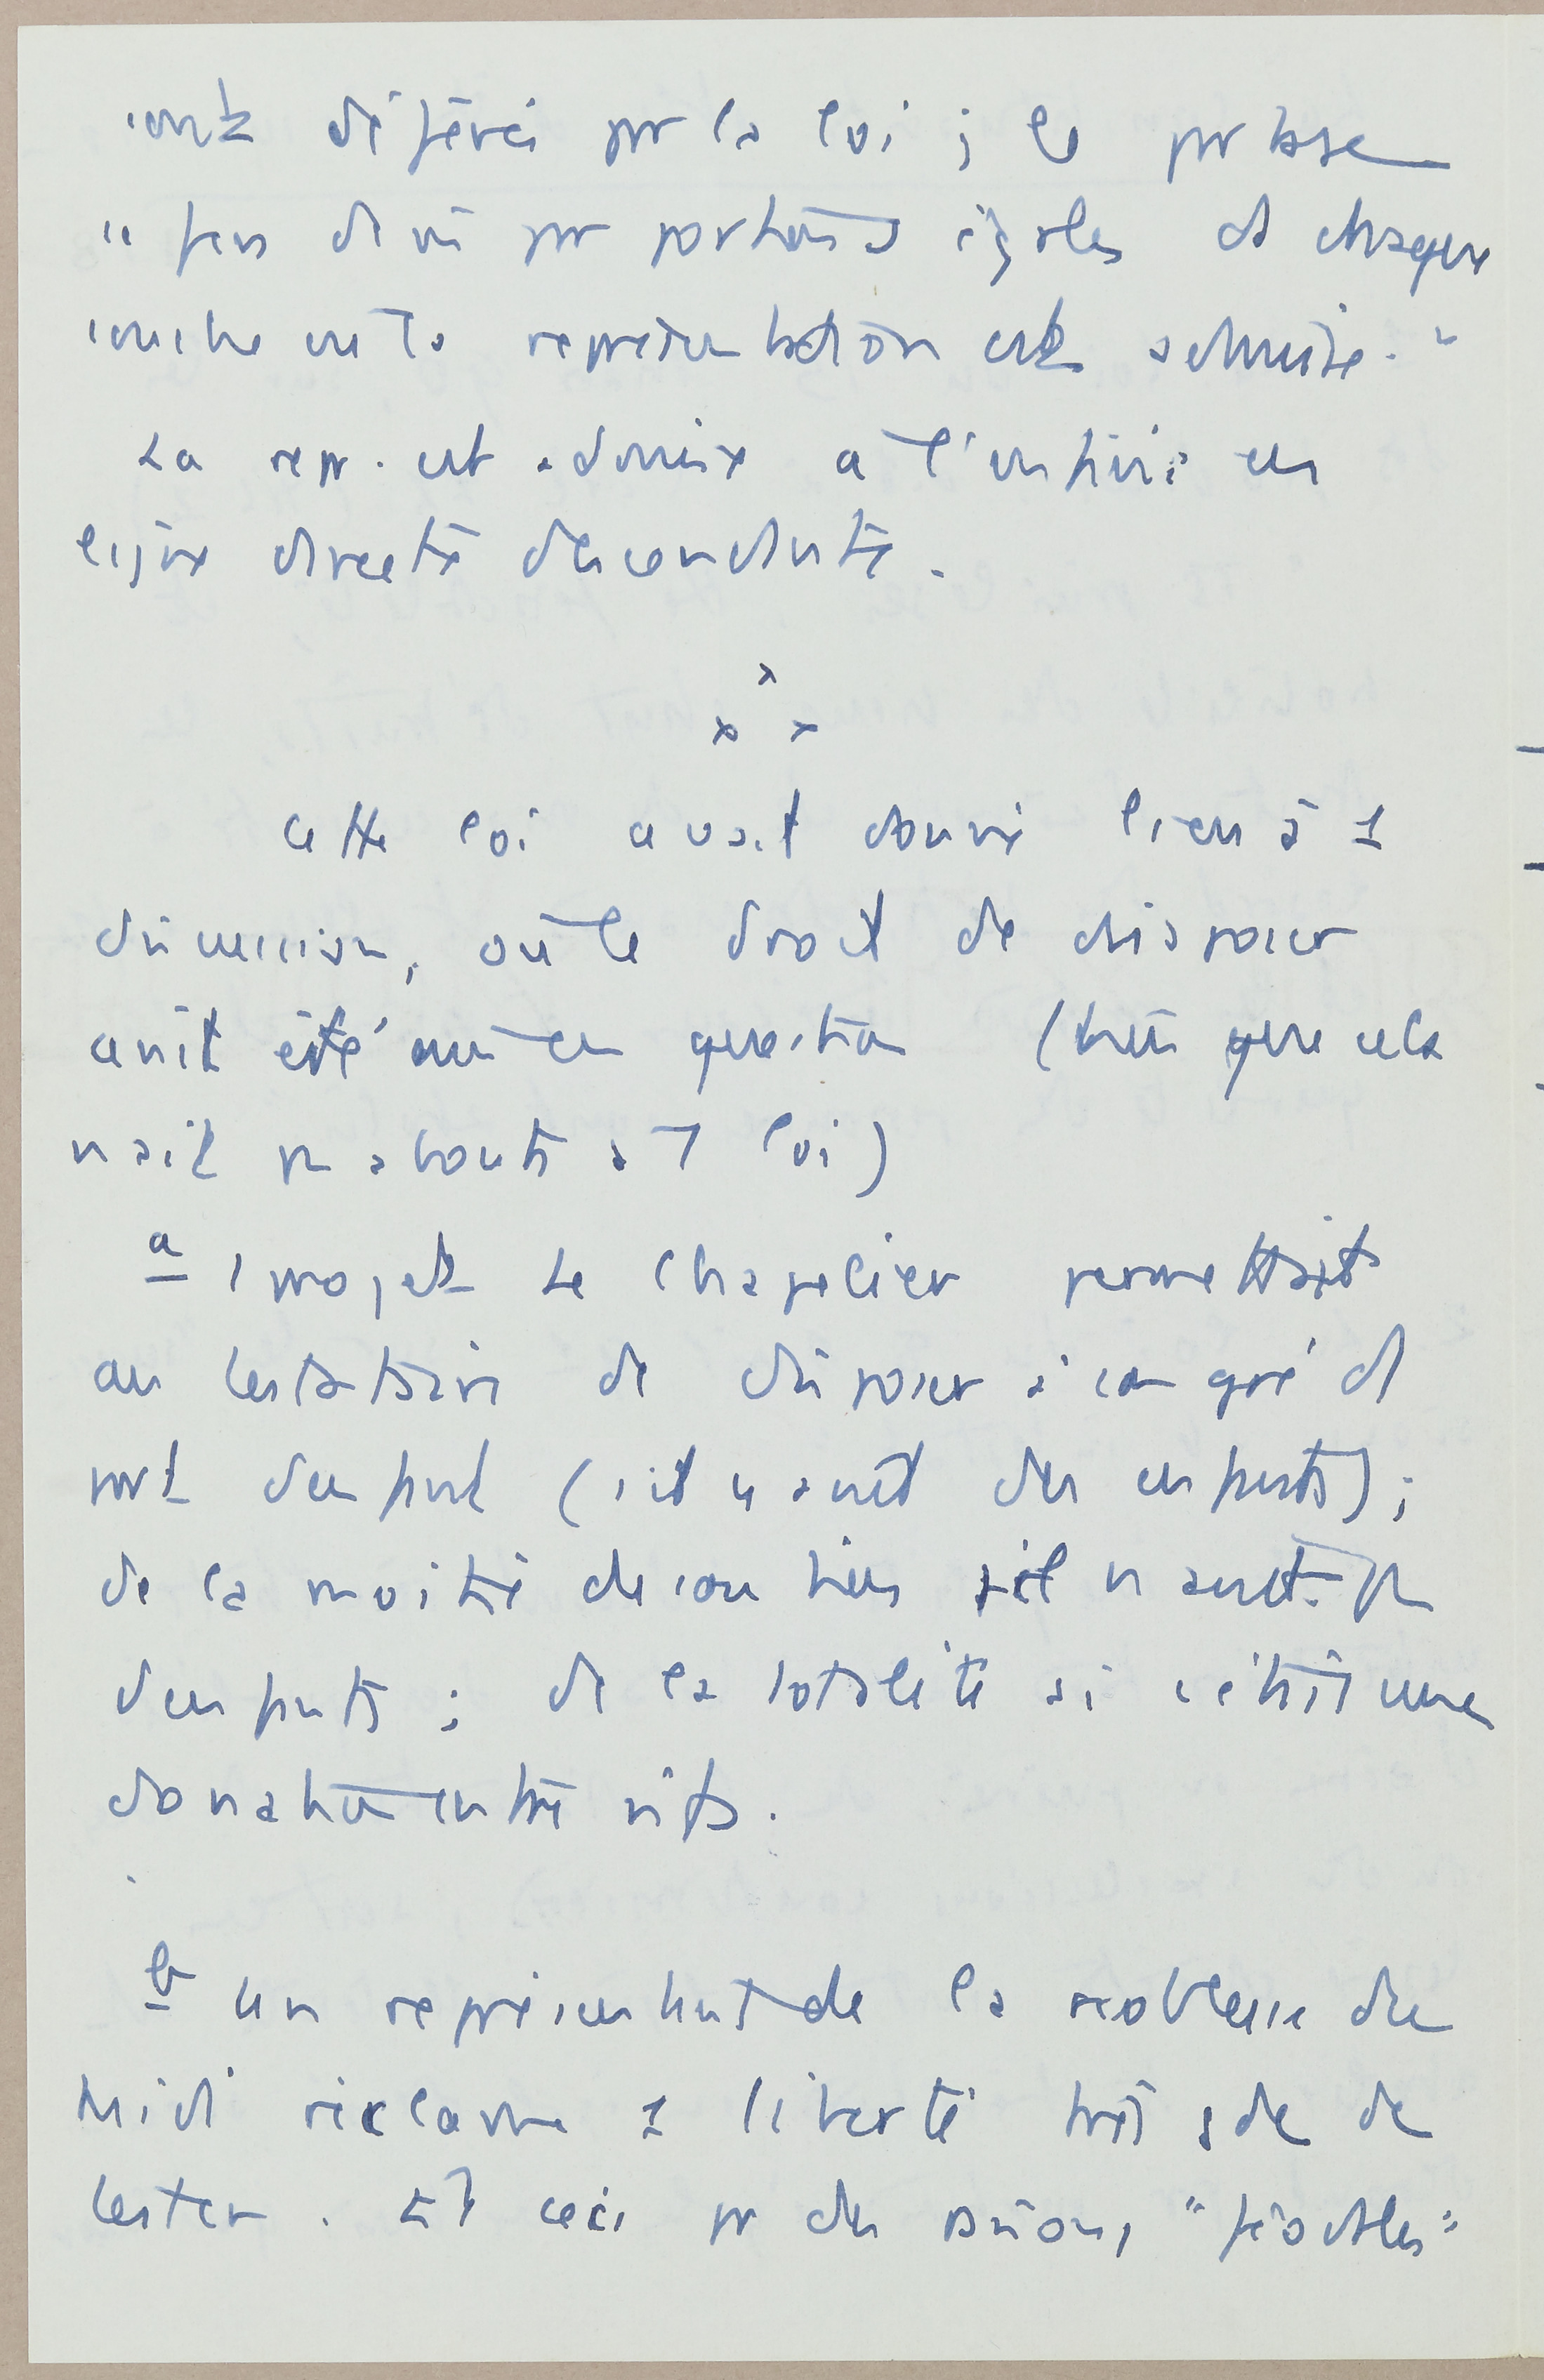 sont déférés par la loi ; le partage
" sera divisé par portions égales ds chaque
souche où la représentation est admise. "
La repr. est admise a l'infini en
ligne directe descendante.
x x x
Cette loi avait donné lieu à 1
discussion, où le droit de disposer
avait été mis en question (bien que cela
n'ait pas abouti à 1 loi)
a 1 projet Le Chapelier permettait
au testataire de disposer à son gré d
part d'enfant (s'il y avait des enfants) ;
de la moitié de son bien s'il n'avait pas
d'enfants ; de la totalité si c'était une
donation entre vifs.
b Un représentant de la noblesse du
Midi réclame 1 liberté très gde de
tester. Et ceci pr des raisons "féodales"